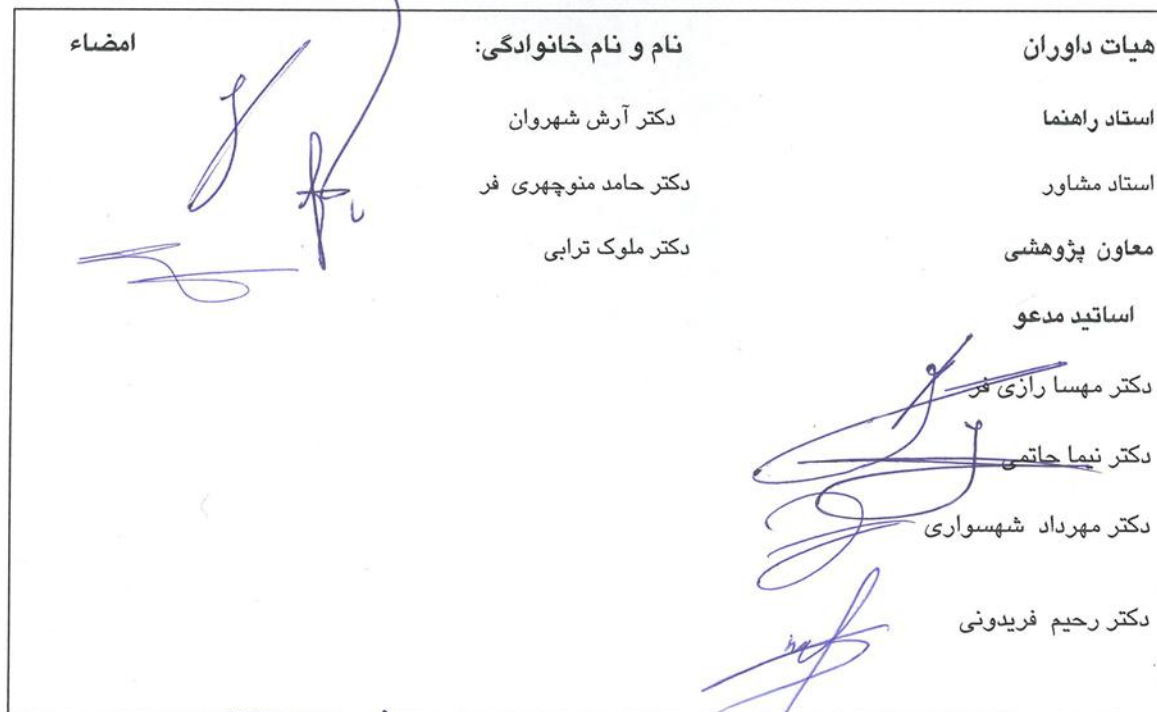 هیات داوران نام و نام خانوادگی: امضاء
استاد راهنما دکتر آرش شهروان
استاد مشاور دکتر حامد منوچهری فر
معاون پژوهشی دکتر ملوک ترابی
اساتید مدعو
دکتر مهسا رازی فر
دکتر نیما حاتمی
دکتر مهرداد شهسواری
دکتر رحیم فریدونی